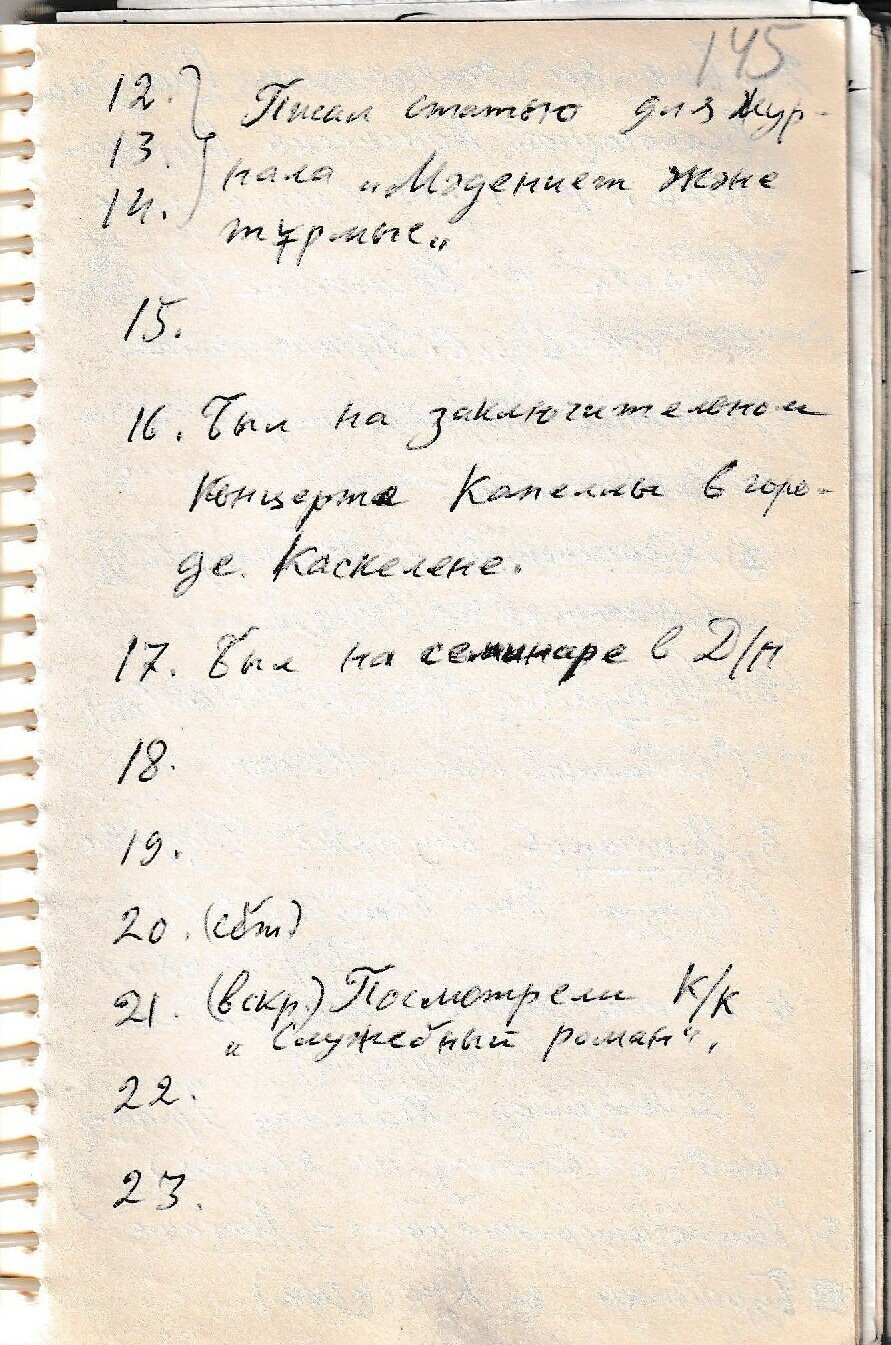 145
12. Писал статью для жур-
13. нала „Мәдениет және
14. тұрмыс"
15.
16. Был на заключительном
концерте Капеллы в горо-
де Каскелене.
17. Был на семинаре в Д/п
18.
19.
20. (сбт)
21. (вскр.) Посмотрели к/к
„Служебный роман",
22.
23.